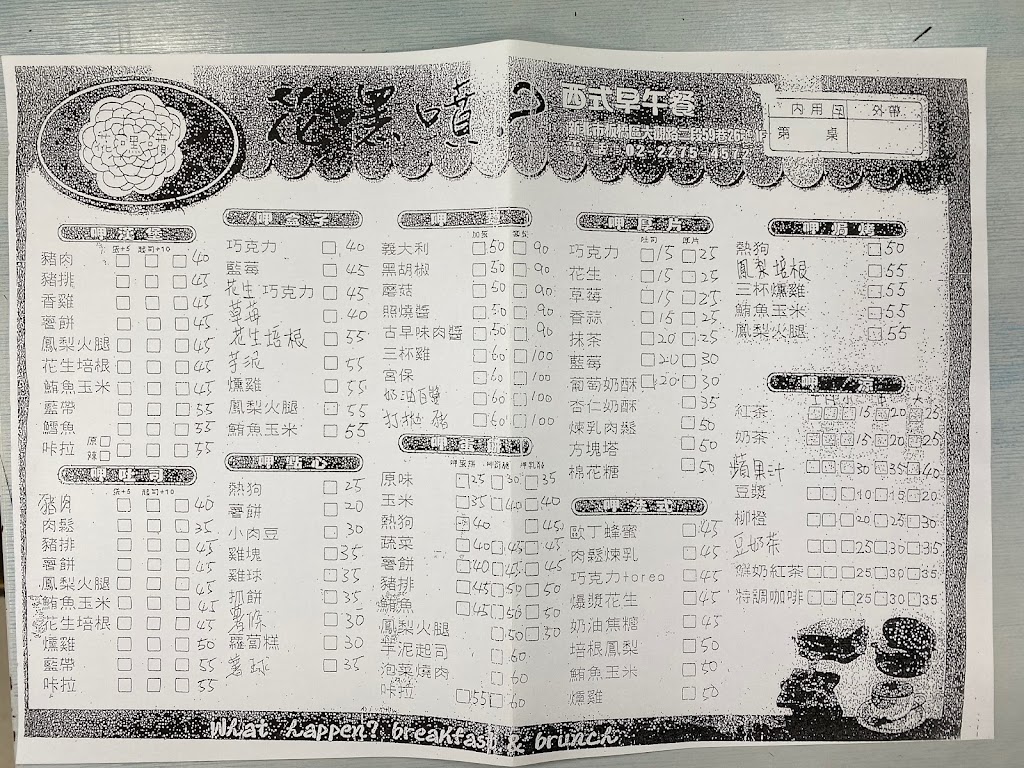 花嘿噴
西式早午餐
02-2275-4577
內用 外帶
第 桌
呷漢堡
蛋+5 起司+10
豬肉 40
豬排 45
香雞 45
薯餅 45
鳳梨火腿 45
花生培根 45
鮪魚玉米 45
藍帶 55
鱈魚 55
咔拉 原 辣 55
呷吐司
蛋+5 起司+10
豬肉 40
肉鬆 35
豬排 45
薯餅 45
鳳梨火腿 45
鮪魚玉米 45
花生培根 45
燻雞 50
藍帶 55
咔拉 55
呷盒子
巧克力 40
藍莓 45
花生巧克力 45
草莓 40
花生培根 55
芋泥 55
燻雞 55
鳳梨火腿 55
鮪魚玉米 55
呷點心
熱狗 25
薯餅 20
小肉豆 30
雞塊 35
雞球 35
抓餅 35
薯條 30
蘿蔔糕 30
薯球 35
呷麵
義大利 50 90
黑胡椒 50 90
蘑菇 50 90
照燒醬 50 90
古早味肉醬 50 90
三杯雞 60 100
宮保 60 100
奶油白醬 60 100
打拋豬 60 100
原味 25 30 35
玉米 35 40 40
熱狗 40 45
蔬菜 40 45 45
薯餅 40 45 45
豬排 45 50 50
鮪魚 45 50 50
鳳梨火腿 50 50
芋泥起司 60
泡菜燒肉 60
咔拉 55 60
呷厚片
吐司 厚片
巧克力 15 25
花生 15 25
草莓 15 25
香蒜 15 25
抹茶 20 25
藍莓 20 30
葡萄奶酥 20 30
杏仁奶酥 35
煉乳肉鬆 50
方塊塔 50
棉花糖 50
呷法式
歐丁蜂蜜 45
肉鬆煉乳 45
巧克力toreo 45
爆漿花生 45
奶油焦糖 45
培根鳳梨 50
鮪魚玉米 50
燻雞 50
熱狗 50
鳳梨培根 55
三杯燻雞 55
鮪魚玉米 55
鳳梨火腿 55
小 中 大
紅茶 15 20 25
奶茶 15 20 25
蘋果汁 30 35 40
豆漿 10 15 20
柳橙 20 25 30
豆奶茶 25 30 35
鮮奶紅茶 25 30 35
特調咖啡 25 30 35
What happen? breakfast & brunch